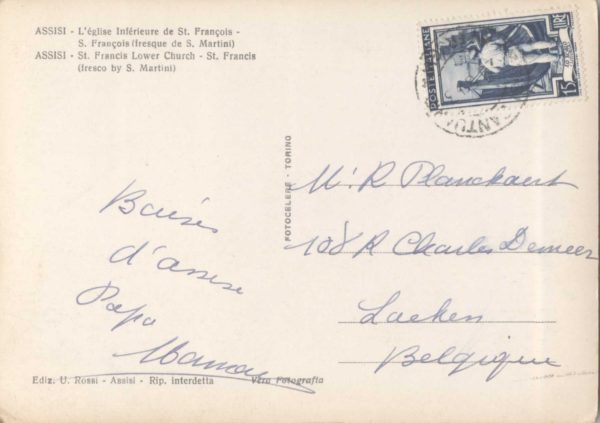 ASSISI - L'église Inférieure de St. François -
S. François (fresque de S. Martini)
ASSISI - St. Francis Lower Church - St. Francis
(fresco by S. Martini)
POSTE ITALIANE
LIRE 15
FOTOCELERE - TORINO
Baisers
d'assise
Papa
Maman
Mr R Planckaert
108 R Charles Demeer
Laeken
Belgique
Ediz. U. Rossi - Assisi - Rip. interdetta Vera Fotografia